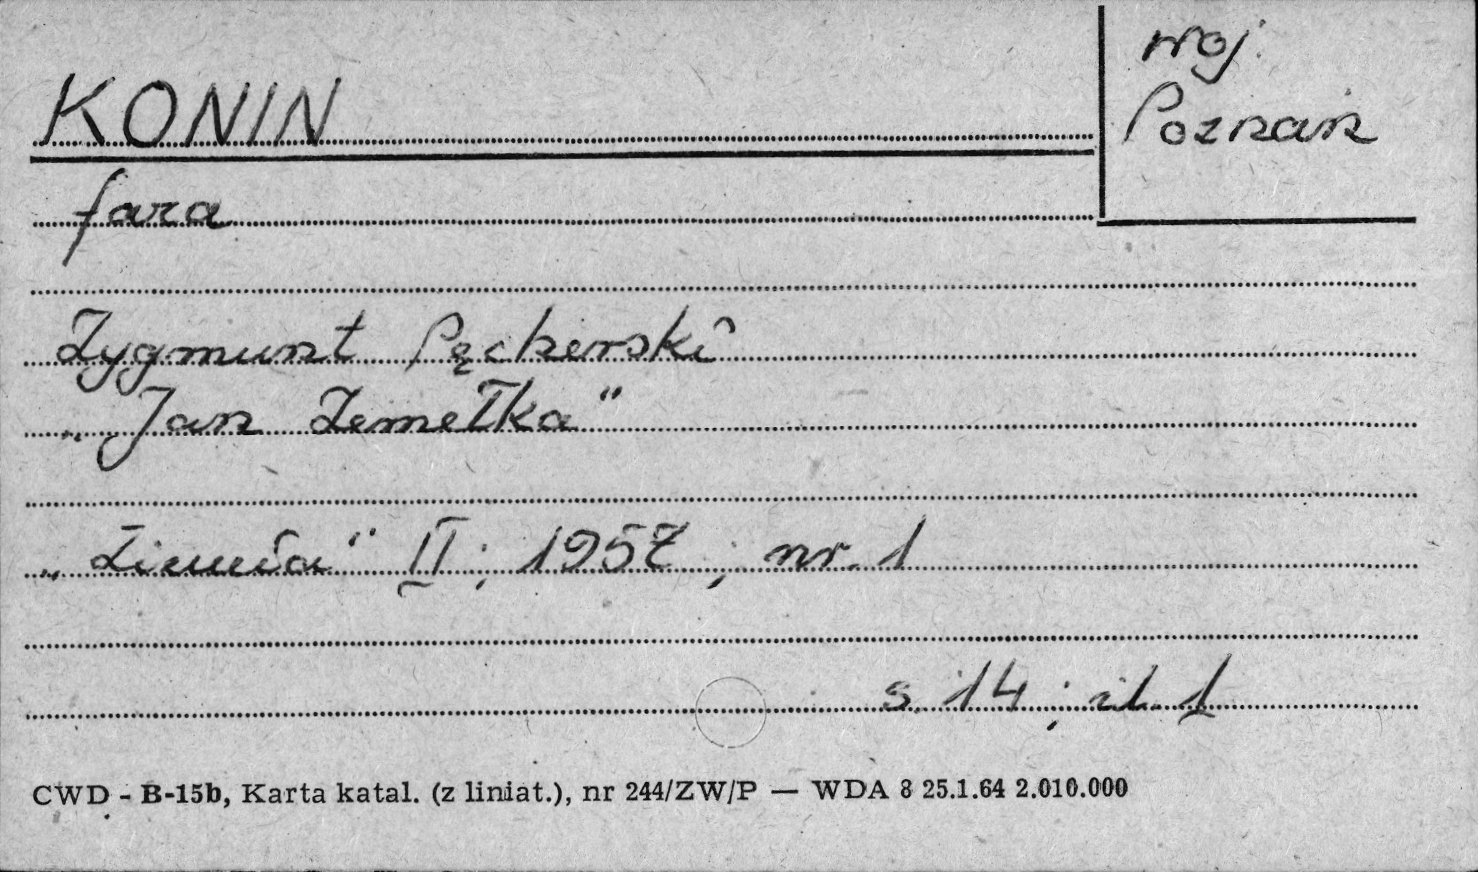 KONIN
woj.
Poznań
fara
Zygmunt Pęckerski
„Jan Zemełka"
„Ziemia" II; 1957; nr. 1
s. 14; il. 1
CWD - B-15b, Karta katal. (z liniat.), nr 244/ZW/P — WDA 8 25.1.64 2.010.000